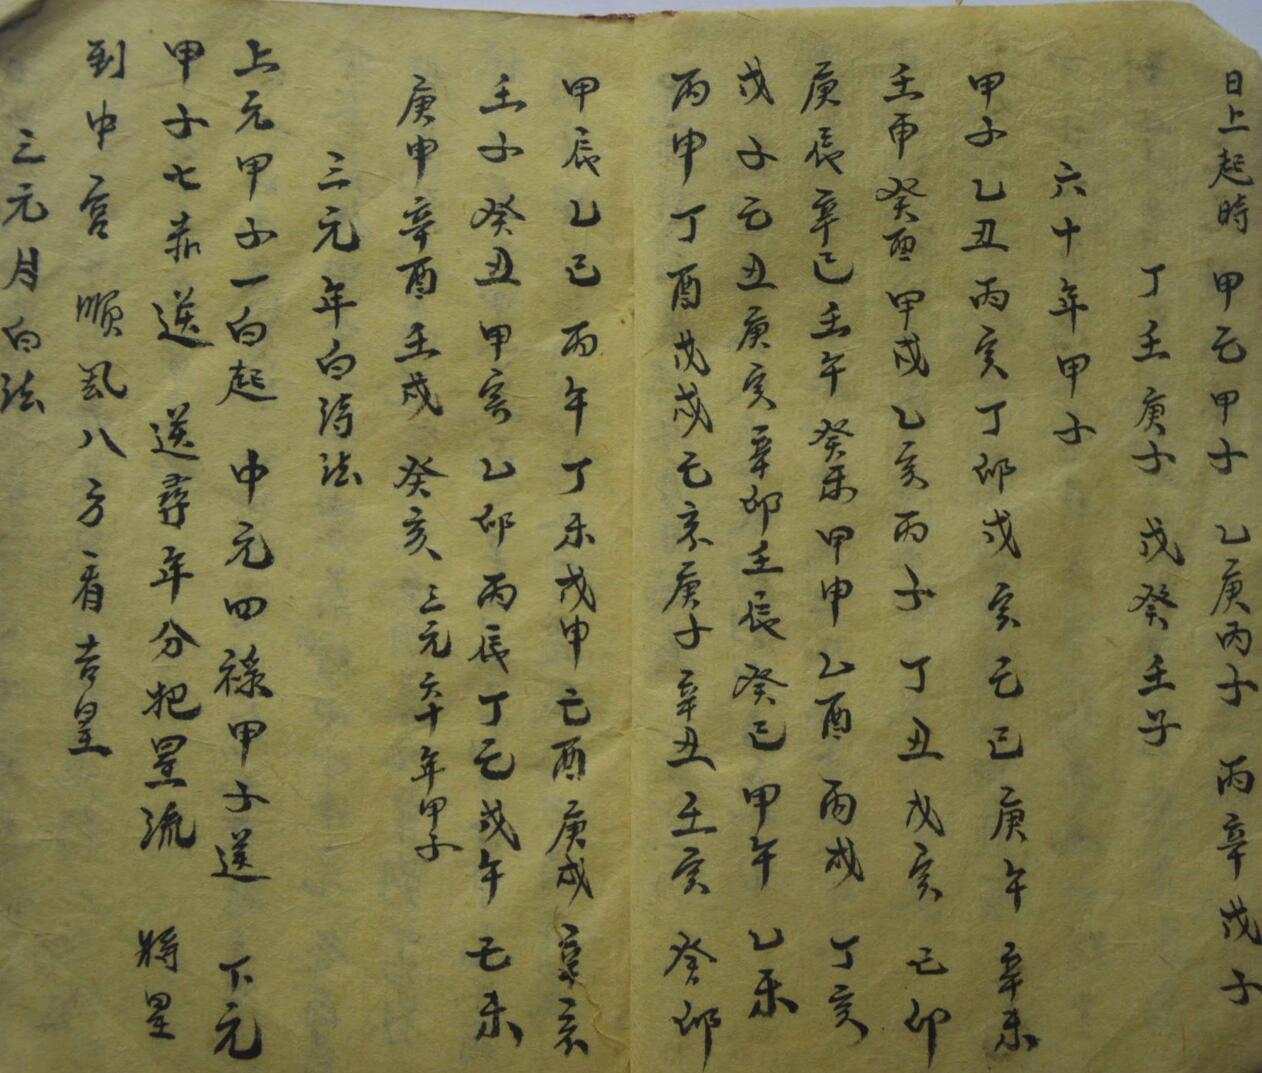 日上起時 甲己甲子 乙庚丙子 丙辛戊子
丁壬庚子 戊癸壬子
六十年甲子
甲子乙丑丙寅丁卯戊寅己巳庚午辛未
壬申癸酉甲戌乙亥丙子丁丑戊寅己卯
庚辰辛巳壬午癸未甲申乙酉丙戌丁亥
戊子己丑庚寅辛卯壬辰癸巳甲午乙未
丙申丁酉戊戌己亥庚子辛丑壬寅癸卯
甲辰乙巳丙午丁未戊申己酉庚戌辛亥
壬子癸丑甲寅乙卯丙辰丁巳戊午己未
庚申辛酉壬戌 癸亥 三元六十年甲子
三元年白诗法
上元甲子一白起 中元四禄甲子逆 下元
甲子七赤逆 逆尋年分把星流 将星
到中宫 順飛八方看吉星
三元月白法